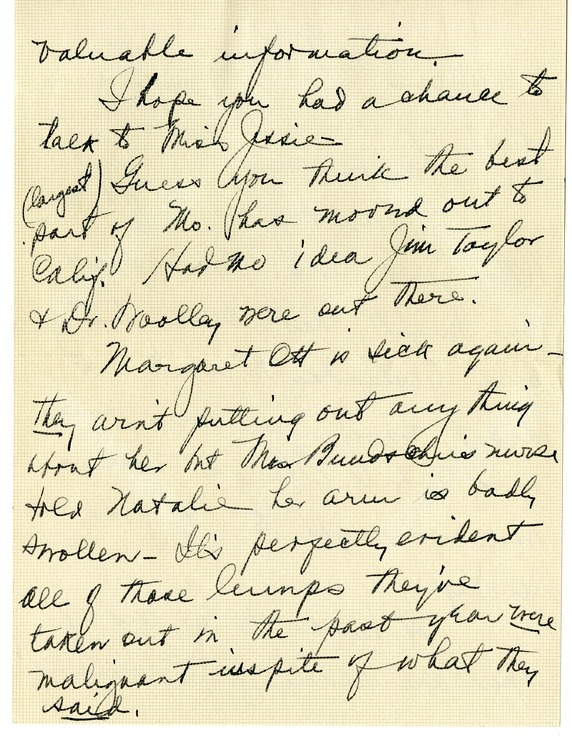 valuable information.
I hope you had a chance to
talk to Miss Jssie
(largest) Guess you think the best
part of Mo. has moved out to
Calif. Had no idea Jim Taylor
& Dr. Woolley were out there.
Margaret Ott is sick again—
they arn't putting out any thing
about her but Mrs Bundschu's nurse
told Natalie her arm is badly
swollen— It's perfectly evident
all of those lumps they've
taken out in the past year were
malignant inspite of what they
said.